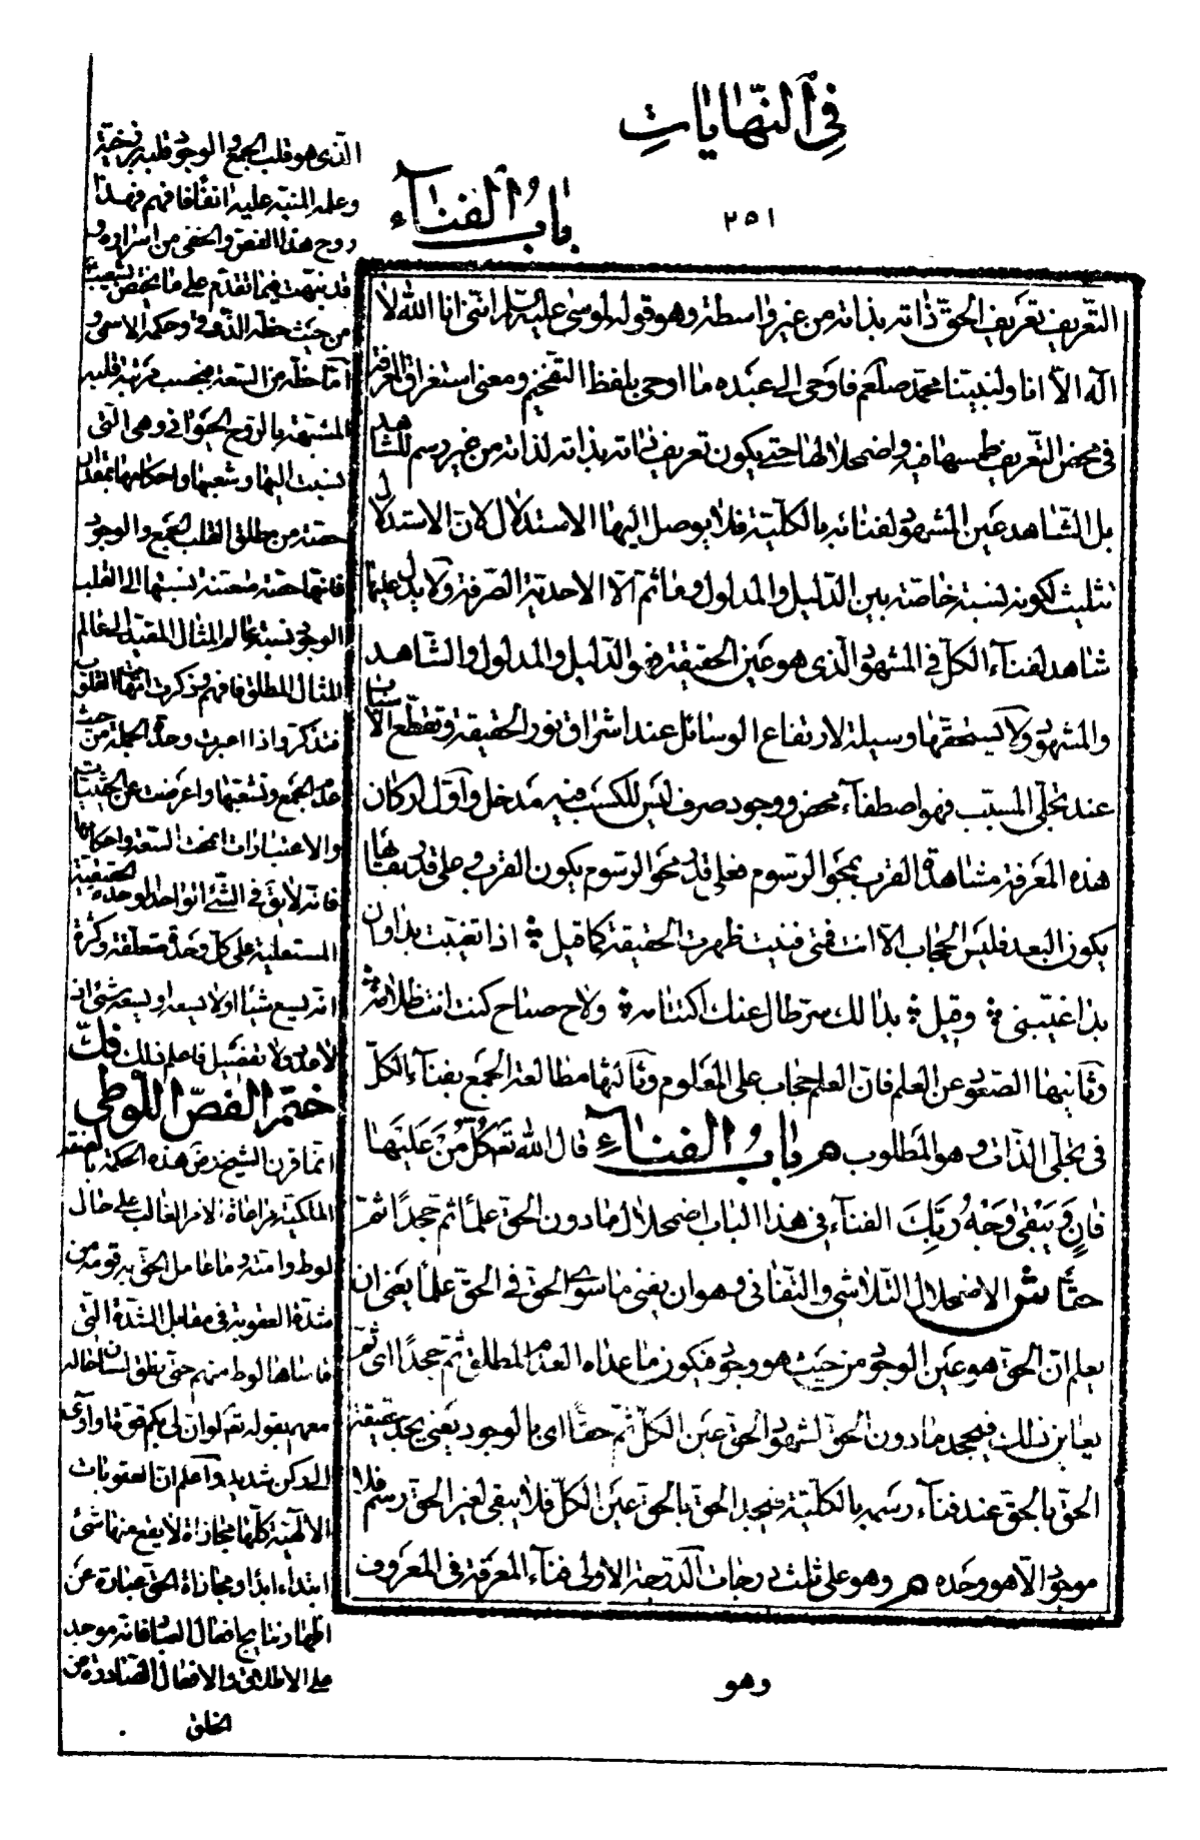 في النهايات
باب الفناء
٢٥١
التعريف تعريف الحق ذاته بذاته من غير واسطة وهو قوله لموسى عليه السلام انني انا الله لا
اله الا انا ولنبينا محمد صلعم فاوحى الى عبده ما اوحى بلفظ التفخيم ومعنى استغراق المعرفة
في محض التعريف طمسها فيه واضمحلالها حتى يكون تعريف ذاته بذاته لذاته من غير رسم للشاهد
بل الشاهد عين المشهود لفنائه بالكلية فلا يوصل اليها الاستدلال لان الاستدلال
تثليث لكونه نسبة خاصة بين الدليل والمدلول وما ثم الا الاحدية الصرفة ولا يدل عليها
شاهد لفناء الكل في المشهود الذى هو عين الحقيقة فهو الدليل والمدلول والشاهد
والمشهود ولا يستحقها وسيلة لارتفاع الوسائل عند اشراق نور الحقيقة وتقطع الاسباب
عند تجلى المسبب فهو اصطفاء محض ووجود صرف ليس للكسب فيه مدخل واول اركان
هذه المعرفة مشاهدة القرب بمحو الرسوم فعلى قدر محو الرسوم يكون القرب وعلى قدر بقائها
يكون البعد فليس الحجاب الا انت فمتى فنيت ظهرت الحقيقة كما قيل اذا تغيبت بدا وان
بدا غيبنى وقيل بدا لك سر طال عنك اكتتامه ولاح صباح كنت انت ظلامه
وثانيها الصعود عن العلم فان العلم حجاب على المعلوم وثالثها مطالعة الجمع بفناء الكل
فى تجلى الذات وهو المطلوب هر باب الفناء قال الله تع كل من عليها
فان ويبقى وجه ربك الفناء في هذا الباب اضمحلال ما دون الحق علما ثم جحدا ثم
حقا ش الاضمحلال التلاشى والتفانى وهو ان يفنى ما سوى الحق في الحق علما يعنى ان
يعلم ان الحق هو عين الوجود من حيث هو وجود فيكون ما عداه العدم المطلق ثم جحدا اى ثم
يعاين ذلك فيجحد ما دون الحق لشهود الحق عين الكل ثم حقا اى بالوجود يعنى يجد حقيقة
الحق بالحق عند فناء رسمه بالكلية فيجد الحق بالحق عين الكل فلا يبقى لغير الحق رسم فلا
موجود الا هو وحده هر وهو على ثلث درجات الدرجة الاولى فناء المعرفة فى المعروف
وهو
الذى هو قلب الجمع والوجود قلبه برزخية
وعلم المنبه عليه انفا فافهم فهذا
روح هذا الفص والخفى من اسراره و
قد نبهت فيما تقدم على ما يختص بشعيب
من حيث حظه الذوقى وحكمه الاسمى و
اما حظه من السعة فبحسب مرتبة قلبه
المشبهة بالروح الحيوانى وهى التى
نسبت اليها وشعبها واحكامها بمقدار
حصته من مطلق القلب الجمع والوجود
فانها حصة متعينة نسبتها الى القلب
الوجودى نسبة عالم المثال المقيد الى عالم
المثال المطلق فافهم وذكرت
فتذكر واذا اعتبرت وحدة الجملة من حيث
عدم الجمع وتشعبها واعرضت عن الحيثيات
والاعتبارات انمحت السعة واحكامها
فانه لا يبق فى الشئ الواحد لوحدته الحقيقية
المستعلية على كل وحدة متعلقة وكثرة
انه يسع شيئا اولا يسعه او يسعه شئ اذ
لا فك
ختم الفص اللوطى
انما قرن الشيخ رض هذه الحكمة بالصفة
الملكية مراعاة الامر الغالب على حال
لوط وامته وما عامل الحق به قومه من
شدة العقوبة فى مقابل الشدة التى
قاساها لوط منهم حتى نطق لسان حاله
معهم بقوله تع لو ان لى بكم قوة او آوى
الى ركن شديد واعلم ان العقوبات
الالهية كلها مجازاة لا يقع منها شئ
ابتداء ابدا ومجازاة الحق عبارة عن
اظهار نتايج افعال العباد فانه موجد
على الاطلاق والافعال الصادرة من
الخلق